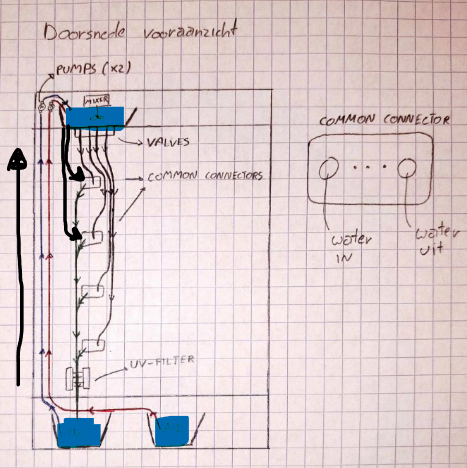 Doorsnede vooraanzicht
PUMPS (x2)
MIXER
VALVES
COMMON CONNECTORS
UV-FILTER
COMMON CONNECTOR
water
IN
water
uit